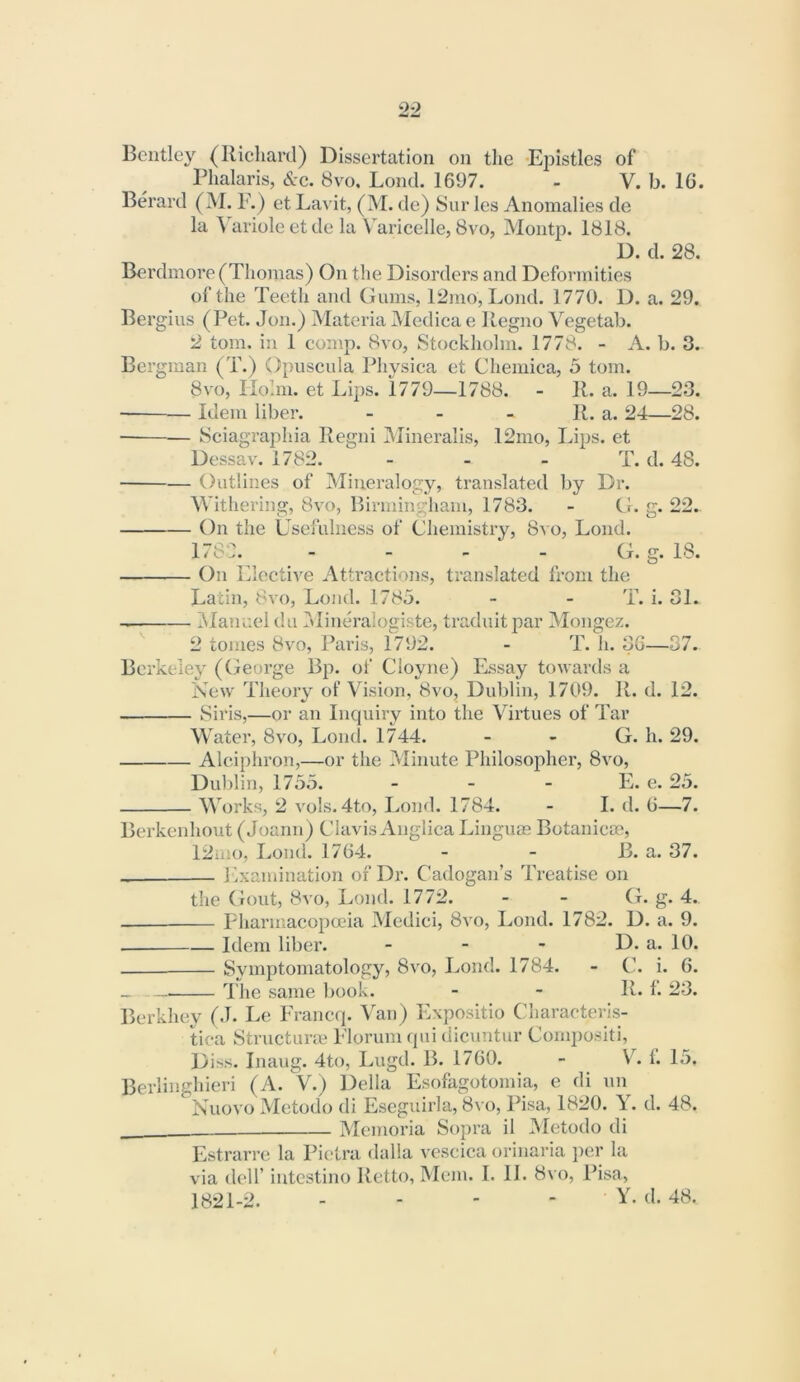 22
Bentley (Richard) Dissertation on the Epistles of
Phalaris, &c. 8vo, Lond. 1697. - V. b. 16.
Bérard (M. F.) et Lavit, (M. de) Sur les Anomalies de
la Variole et de la Varicelle, 8vo, Montp. 1818.
D. d. 28.
Berdmore (Thomas) On the Disorders and Deformities
of the Teeth and Gums, 12mo, Lond. 1770. D. a. 29.
Bergius (Pet. Jon.) Materia Medica e Regno Vegetab.
2 tom. in 1 comp. 8vo, Stockholm. 1778. - A. b. 3.
Bergman (T.) Opuscula Physica et Chemica, 5 tom.
8vo, Holm. et Lips. 1779—1788. - R. a. 19—23.
——— Idem liber. - - - R. a. 24—28.
——— Sciagraphia Regni Mineralis, 12mo, Lips. et
Dessav. 1782. - - - T. d. 48.
——— Outlines of Mineralogy, translated by Dr.
Withering, 8vo, Birmingham, 1783. - G. g. 22.
——— On the Usefulness of Chemistry, 8vo, Lond.
1783. - - - - G. g. 18.
——— On Elective Attractions, translated from the
Latin, 8vo, Lond. 1785. - - T. i. 31.
——— Manuel du Minéralogiste, traduit par Mongez.
2 tomes 8vo, Paris, 1792. - T. h. 36—37.
Berkeley (George Bp. of Cloyne) Essay towards a
New Theory of Vision, 8vo, Dublin, 1709. R. d. 12.
——— Siris,—or an Inquiry into the Virtues of Tar
Water, 8vo, Lond. 1744. - - G. h. 29.
——— Alciphron,—or the Minute Philosopher, 8vo,
Dublin, 1755. - - - E. e. 25.
——— Works, 2 vols. 4to, Lond. 1784. - I. d. 6—7.
Berkenhout (Joann) Clavis Anglica Linguæ Botanicæ,
12mo, Lond. 1764. - - B. a. 37.
——— Examination of Dr. Cadogan's Treatise on
the Gout, 8vo, Lond. 1772. - - G. g. 4.
——— Pharmacopœia Medici, 8vo, Lond. 1782. D. a. 9.
——— Idem liber. - - - D. a. 10.
——— Symptomatology, 8vo, Lond. 1784. - C. i. 6.
——— The same book. - - R. f. 23.
Berkhey (J. Le Francq. Van) Expositio Characteris-
tica Structuræ Florum qui dicuntur Compositi,
Diss. Inaug. 4to, Lugd. B. 1760. - V. f. 15.
Berlinghieri (A. V.) Della Esofagotomia, e di un
Nuovo Metodo di Eseguirla, 8vo, Pisa, 1820. Y. d. 48.
——— Memoria Sopra il Metodo di
Estrarre la Pietra dalla vescica orinaria per la
via dell' intestino Retto, Mem. I. II. 8vo, Pisa,
1821-2. - - - - Y. d. 48.